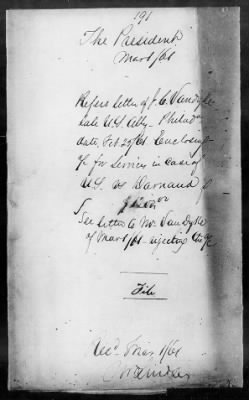 191
The President
Mar 1/61
Refers letter of J. C. Vandyke
late U.S. Atty. Philada
date, Feb 20/61 Enclosing
for Services in Case of
U.S. vs
See letter to Mr. Van Dyke
of Mar 1/61 - rejecting this
File
Rec'd Mar. 1/61